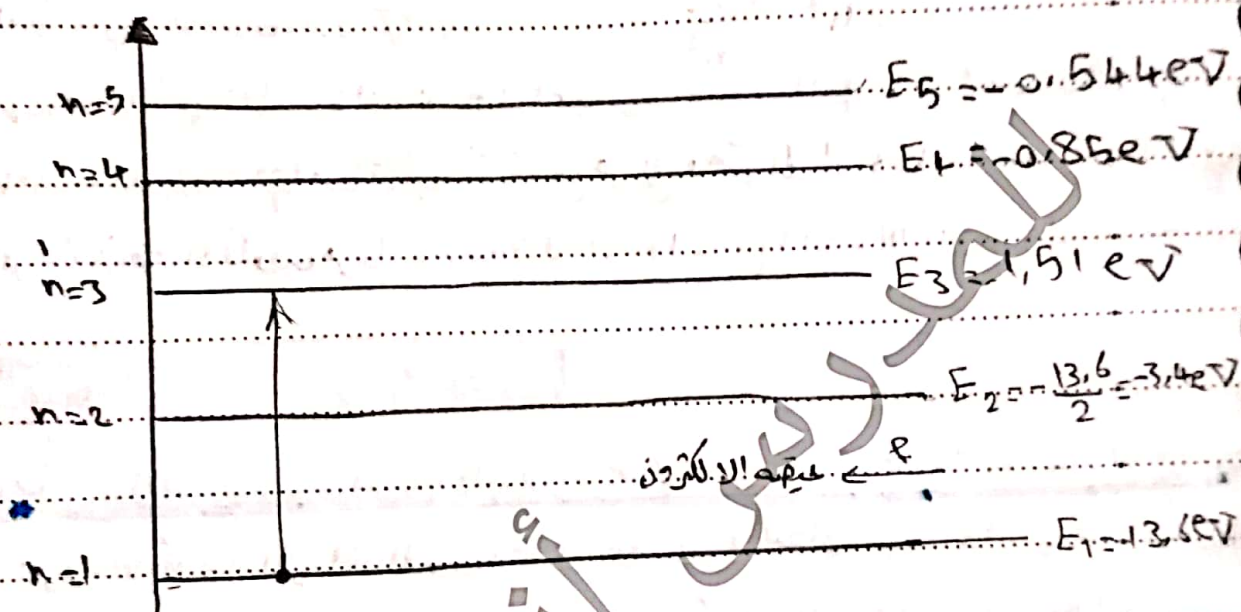 n=5 E5 = -0.544eV
n=4 E4 = -0.85eV
n=3 E3 = -1,51 eV
n=2 E2 = -13,6/2 = -3,4eV
الالكترون
n=1 E1 = -13,6eV
للمدرس